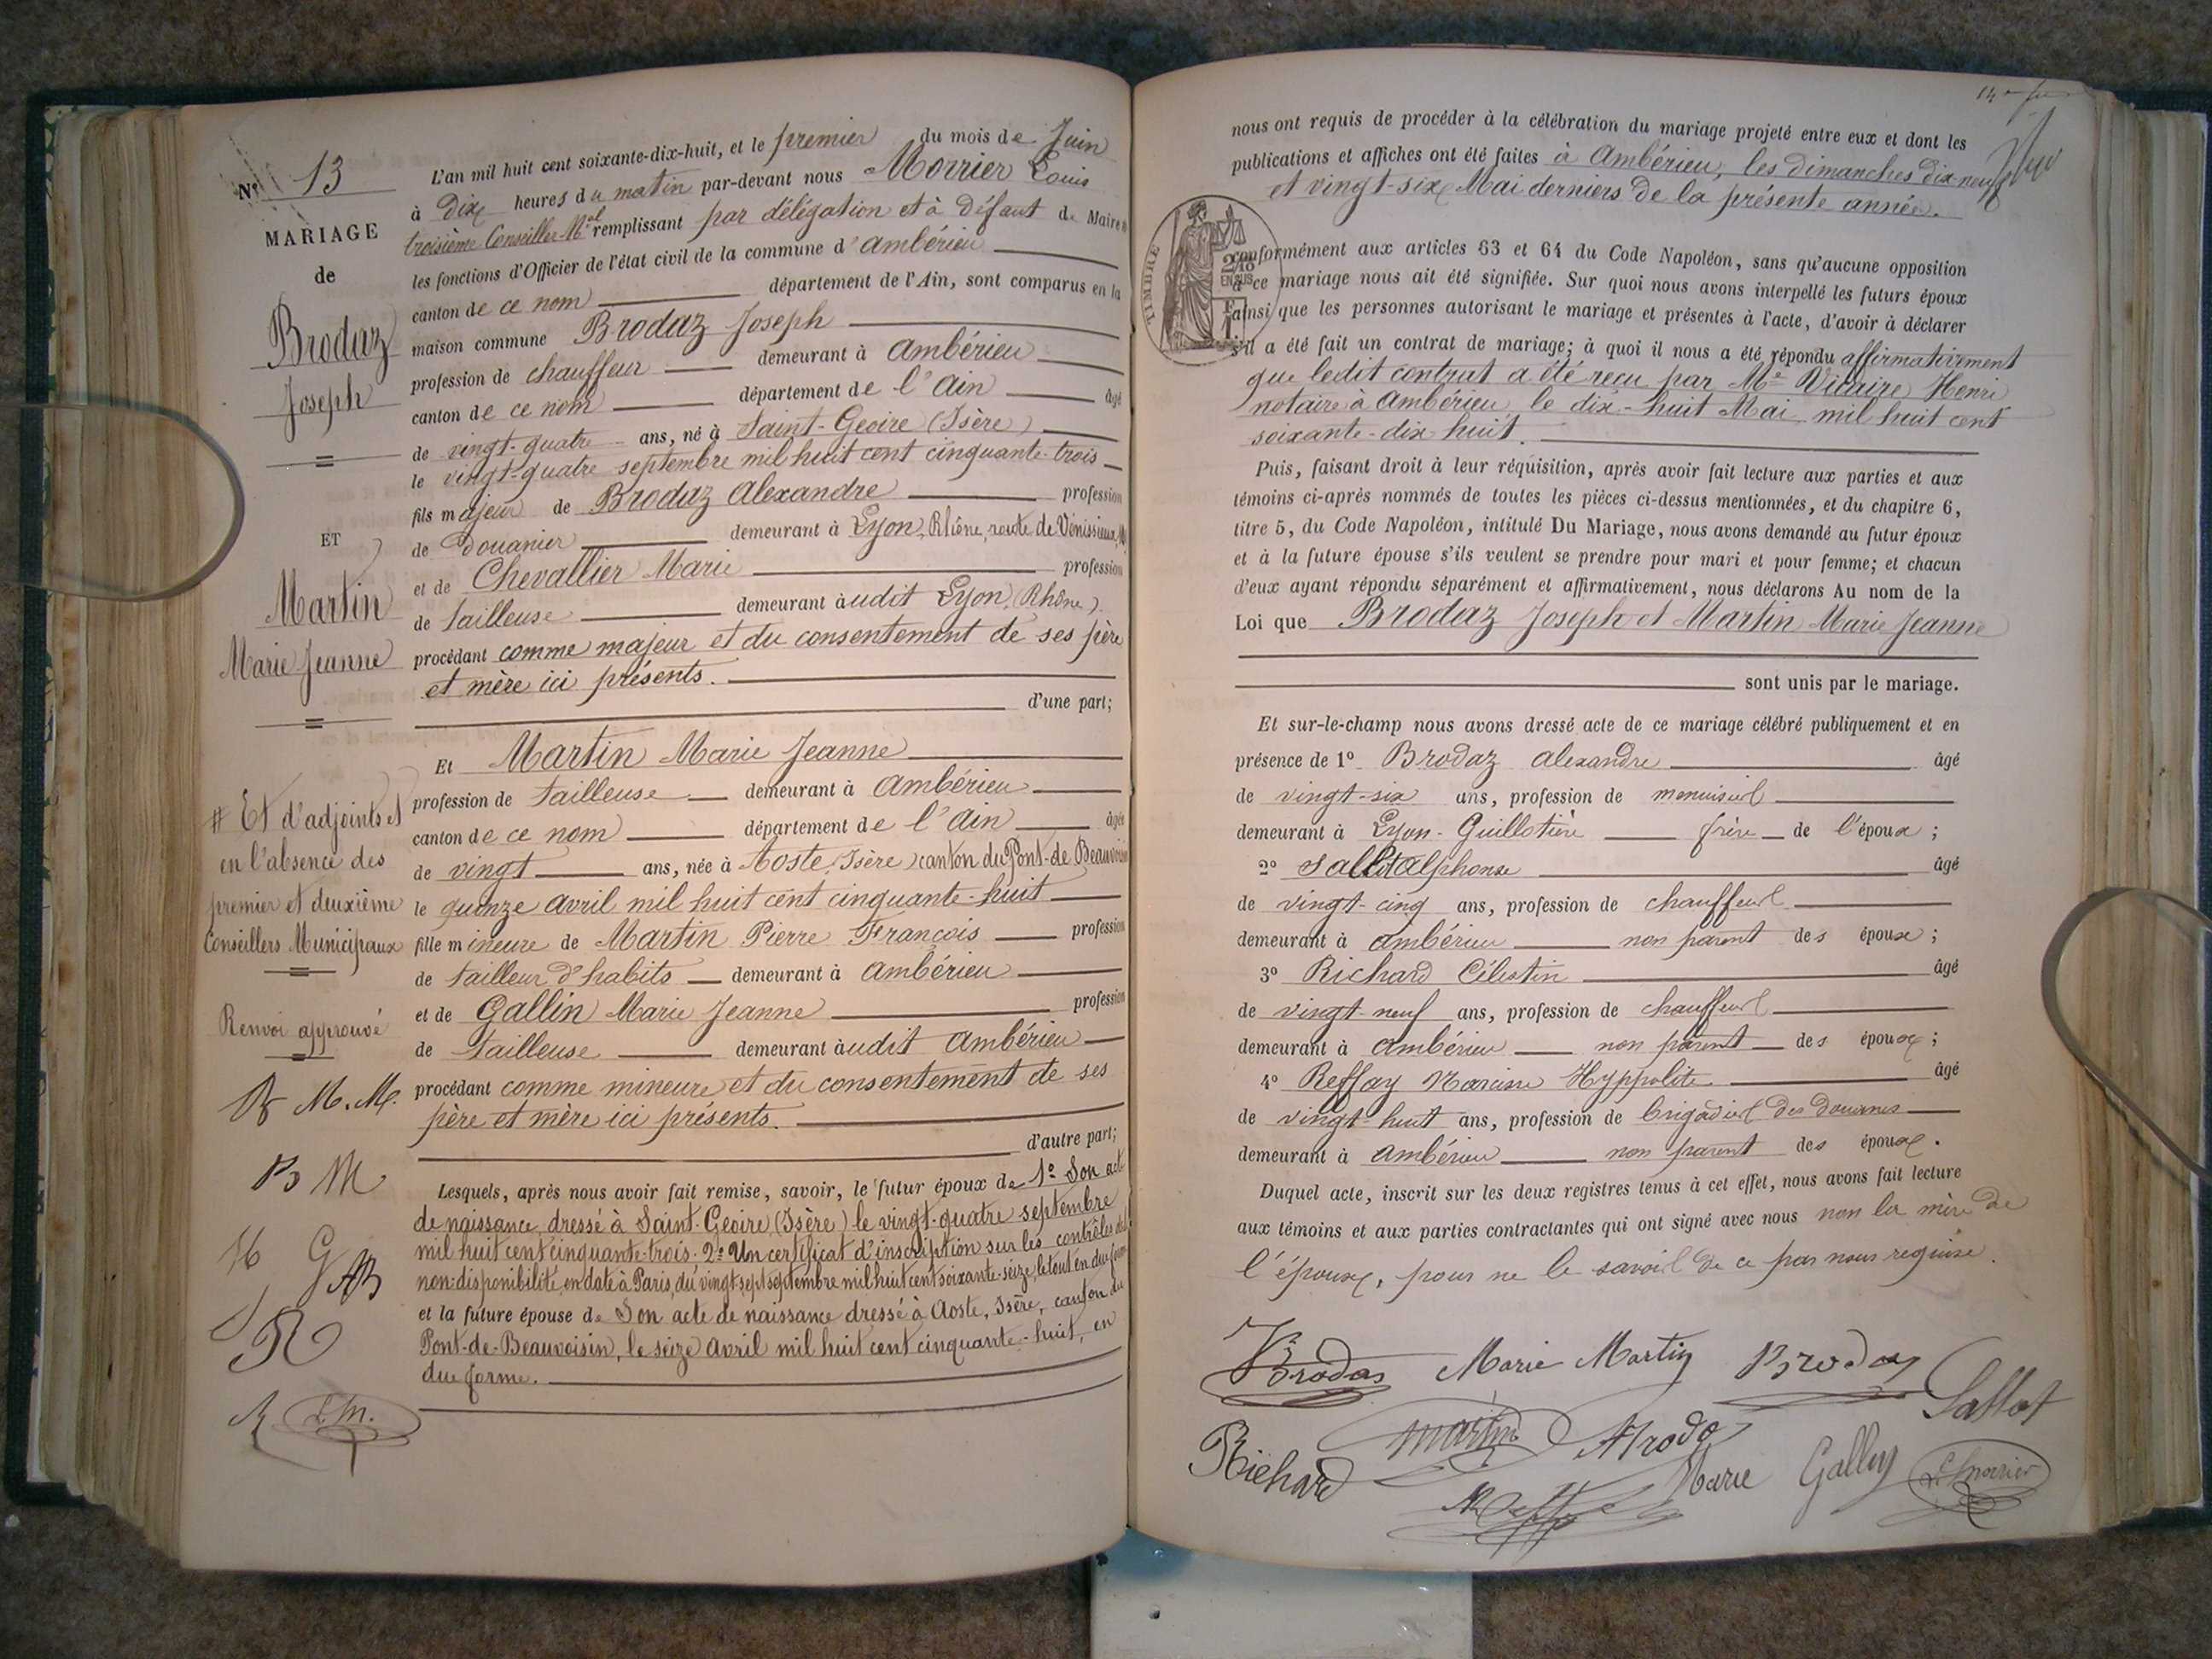 N° 13
MARIAGE
de
Brodaz
Joseph
ET
Martin
Marie Jeanne
# Et d'adjoints et
en l'absence des
premier et deuxième
Conseillers Municipaux
Renvoi approuvé
M. M.
B M
G AB
R
L M.
L'an mil huit cent soixante-dix-huit, et le premier du mois de Juin
à dix heures du matin par-devant nous Morrier Louis
troisième Conseiller Mal remplissant par délégation et à défaut de Maire #
les fonctions d'Officier de l'état civil de la commune d'Ambérieu
canton de ce nom département de l'Ain, sont comparus en la
maison commune Brodaz Joseph
profession de chauffeur demeurant à Ambérieu
canton de ce nom département de l'Ain âgé
de vingt-quatre ans, né à Saint-Geoire (Isère)
le vingt-quatre septembre mil huit cent cinquante-trois
fils majeur de Brodaz Alexandre profession
de Douanier demeurant à Lyon, Rhône, route de Vénissieux,
et de Chevallier Marie profession
de tailleuse demeurant àudit Lyon, (Rhône).
procédant comme majeur et du consentement de ses père
et mère ici présents.
d'une part;
Et Martin Marie Jeanne
profession de tailleuse demeurant à Ambérieu
canton de ce nom département de l'Ain âgée
de vingt ans, née à Aoste, (Isère) canton du Pont-de-Beauvoisin
le quinze avril mil huit cent cinquante-huit
fille mineure de Martin Pierre François profession
de tailleur d'habits demeurant à Ambérieu
et de Gallin Marie Jeanne profession
de tailleuse demeurant àudit Ambérieu
procédant comme mineure et du consentement de ses
père et mère ici présents.
d'autre part;
Lesquels, après nous avoir fait remise, savoir, le futur époux de 1° Son acte
de naissance dressé à Saint-Geoire (Isère) le vingt-quatre septembre
mil huit cent cinquante-trois. 2° Un certificat d'inscription sur les contrôles de
non-disponibilité, en date à Paris, du vingt-sept septembre mil huit cent soixante-seize, le tout en due forme
et la future épouse de Son acte de naissance dressé à Aoste, Isère, canton du
Pont-de-Beauvoisin, le seize avril mil huit cent cinquante-huit, en
due forme.
nous ont requis de procéder à la célébration du mariage projeté entre eux et dont les
publications et affiches ont été faites à Ambérieu, les dimanches dix-neuf
et vingt-six Mai derniers de la présente année.
TIMBRE
2/10
EN SUS
conformément aux articles 63 et 64 du Code Napoléon, sans qu'aucune opposition
à ce mariage nous ait été signifiée. Sur quoi nous avons interpellé les futurs époux
ainsi que les personnes autorisant le mariage et présentes à l'acte, d'avoir à déclarer
s'il a été fait un contrat de mariage; à quoi il nous a été répondu affirmativement
que ledit contrat a été reçu par Me Vicaire Henri
notaire à Ambérieu, le dix-huit Mai mil huit cent
soixante-dix-huit.
Puis, faisant droit à leur réquisition, après avoir fait lecture aux parties et aux
témoins ci-après nommés de toutes les pièces ci-dessus mentionnées, et du chapitre 6,
titre 5, du Code Napoléon, intitulé Du Mariage, nous avons demandé au futur époux
et à la future épouse s'ils veulent se prendre pour mari et pour femme; et chacun
d'eux ayant répondu séparément et affirmativement, nous déclarons Au nom de la
Loi que Brodaz Joseph et Martin Marie Jeanne
sont unis par le mariage.
Et sur-le-champ nous avons dressé acte de ce mariage célébré publiquement et en
présence de 1° Brodaz Alexandre âgé
de vingt-six ans, profession de menuisier
demeurant à Lyon-Guillotière frère de l'époux;
2° Sallot Alphonse âgé
de vingt-cinq ans, profession de chauffeur
demeurant à Ambérieu non parent des époux;
3° Richard Célestin âgé
de vingt-neuf ans, profession de chauffeur
demeurant à Ambérieu non parent des époux;
4° Reffay Narcisse Hyppolite âgé
de vingt-huit ans, profession de brigadier des Douanes
demeurant à Ambérieu non parent des époux.
Duquel acte, inscrit sur les deux registres tenus à cet effet, nous avons fait lecture
aux témoins et aux parties contractantes qui ont signé avec nous non la mère de
l'époux, pour ne le savoir de ce par nous requise.
Brodas Marie Martin Brodaz Sallot
Richard Martin
Marie Gallin L Morrier